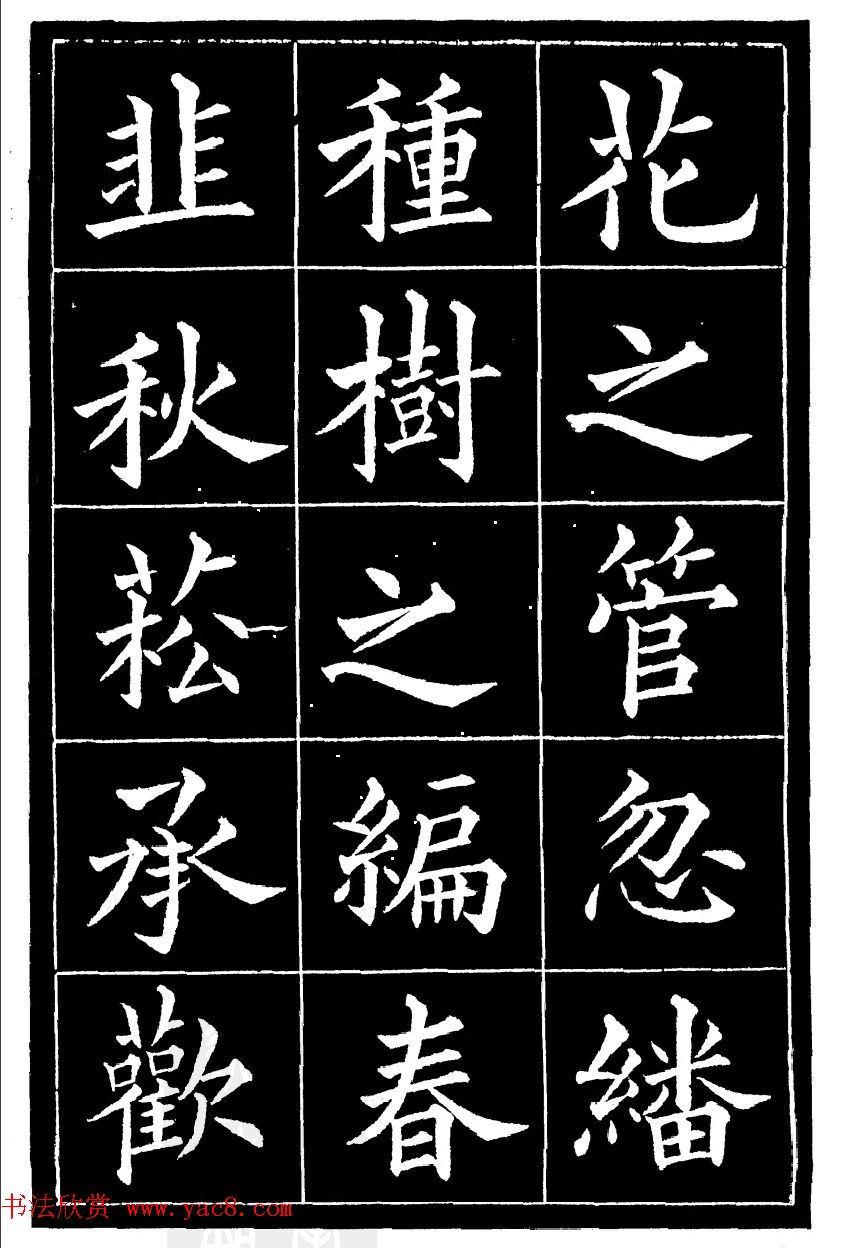 花之管忽繙
種樹之編春
韭秋菘承歡
书法欣赏 www.yac8.com